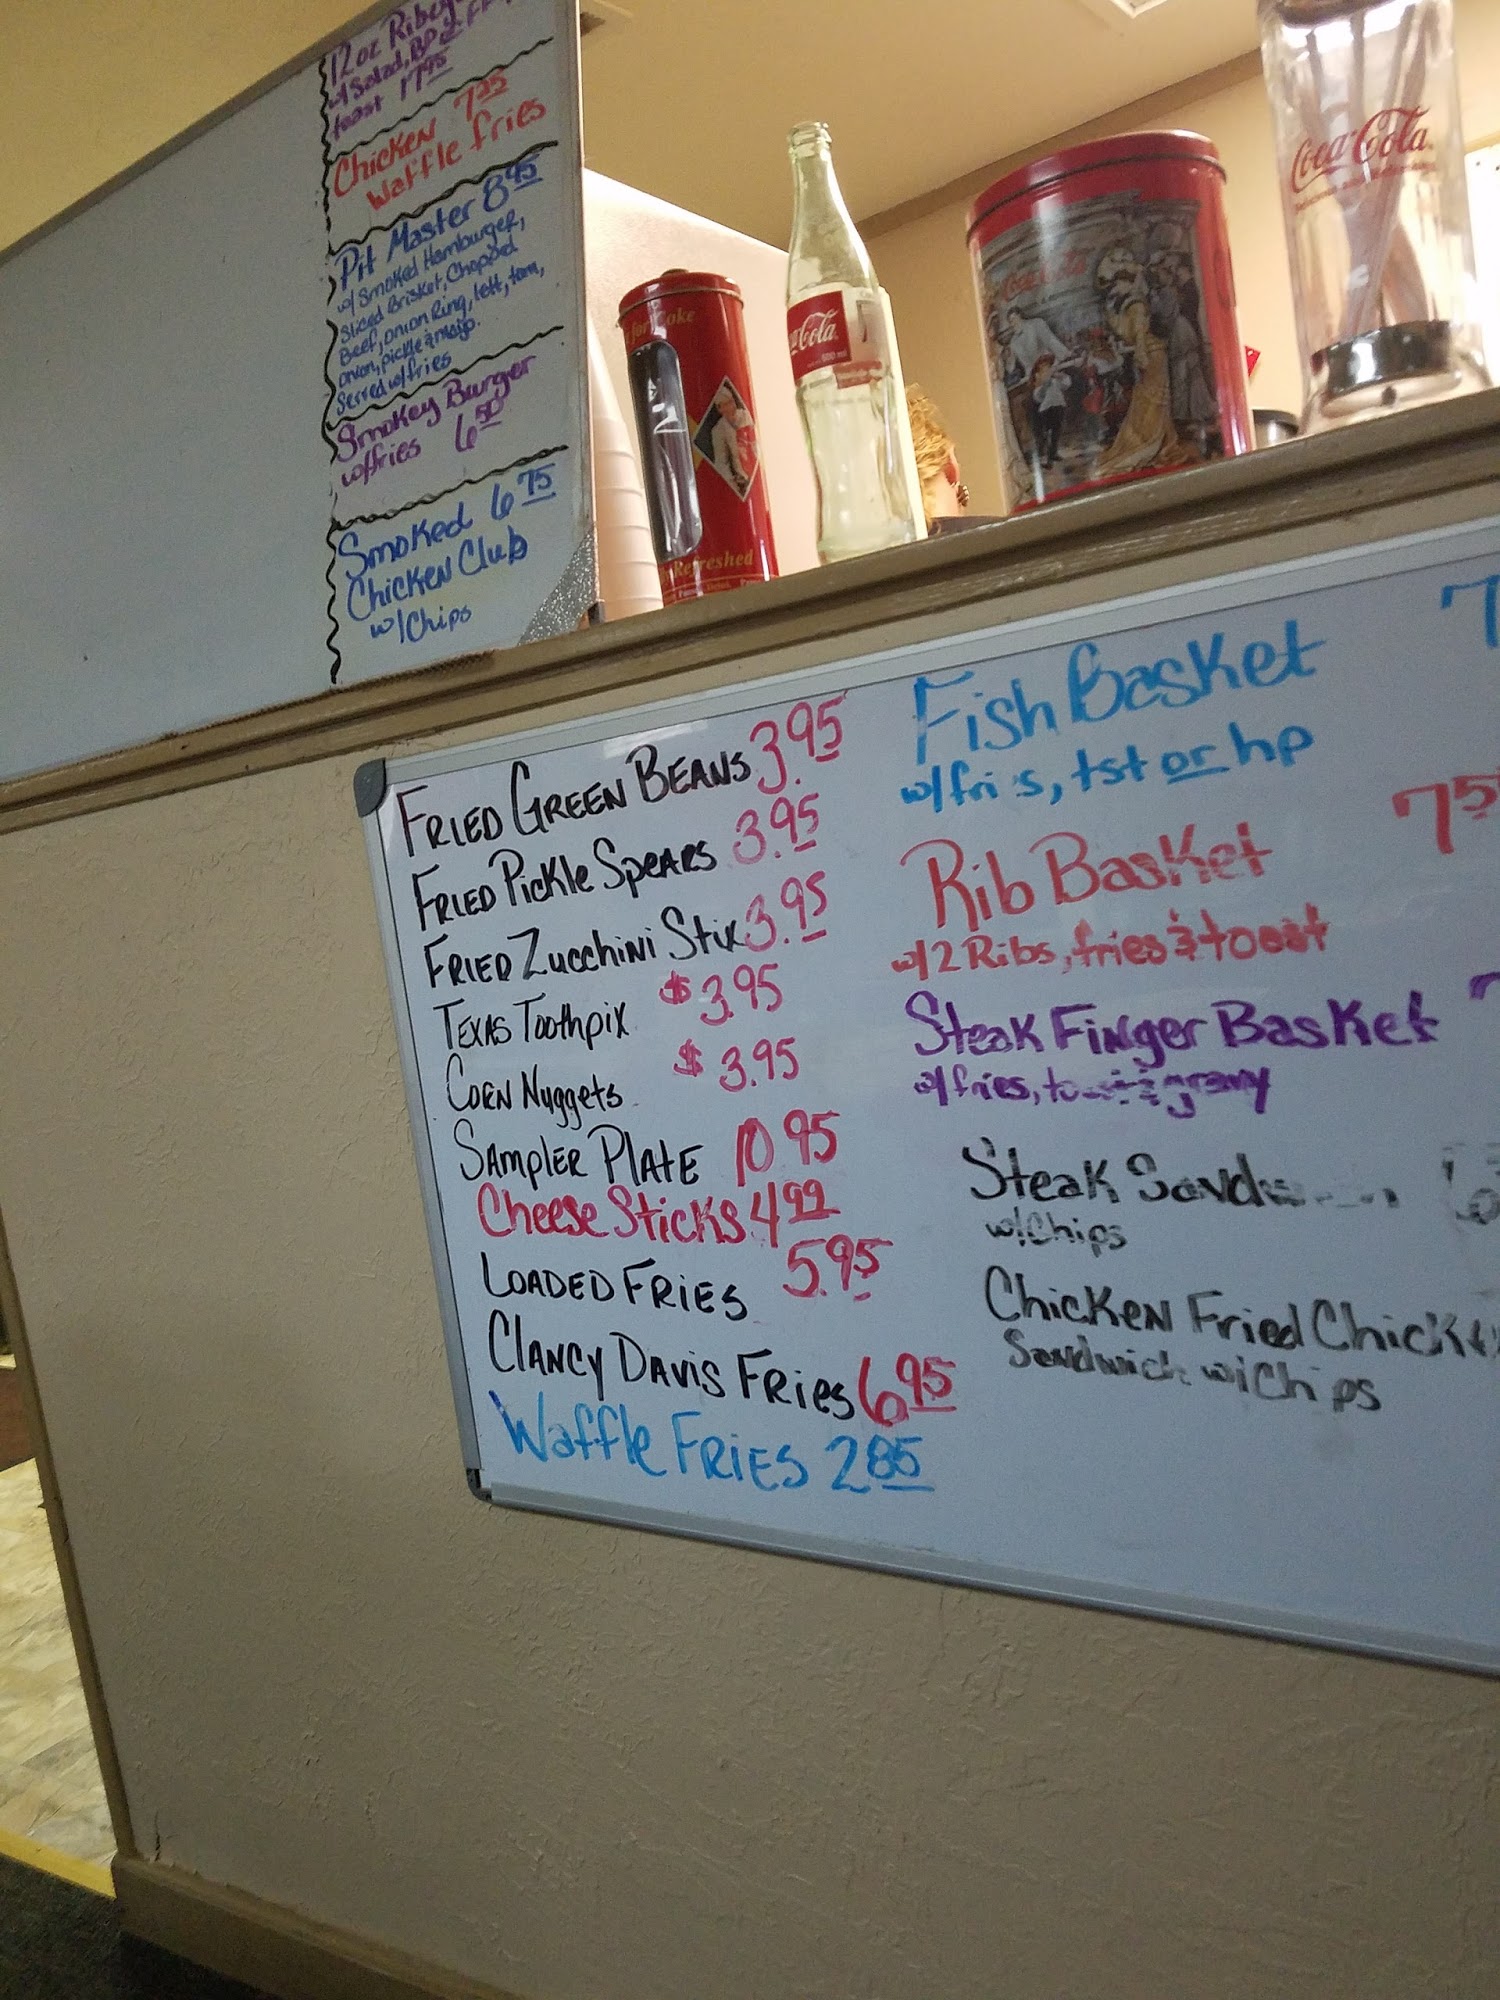 12oz Ribeye
w/ Salad, BP or FF,
toast 17.95
Chicken 7.25
Waffle fries
Pit Master 8.95
w/ Smoked Hamburger,
Sliced Brisket, Chopped
Beef, onion Ring, lett, tom,
onion, pickle & mayo.
Served w/fries
Smokey Burger
w/fries 6.50
Smoked 6.75
Chicken Club
w/Chips
for Coke
Refreshed
Coca-Cola
Coca-Cola
Fried Green Beans 3.95
Fried Pickle Spears 3.95
Fried Zucchini Stix 3.95
Texas Toothpix $3.95
Corn Nuggets $3.95
Sampler Plate 10.95
Cheese Sticks 4.99
Loaded Fries 5.95
Clancy Davis Fries 6.95
Waffle Fries 2.85
Fish Basket 7
w/fri s, tst or hp
Rib Basket 7.5
w/2 Ribs, fries & toast
Steak Finger Basket
w/fries, toast & gravy
Steak
w/Chips
Chicken Fried Chicken
Sandwich w/Chips